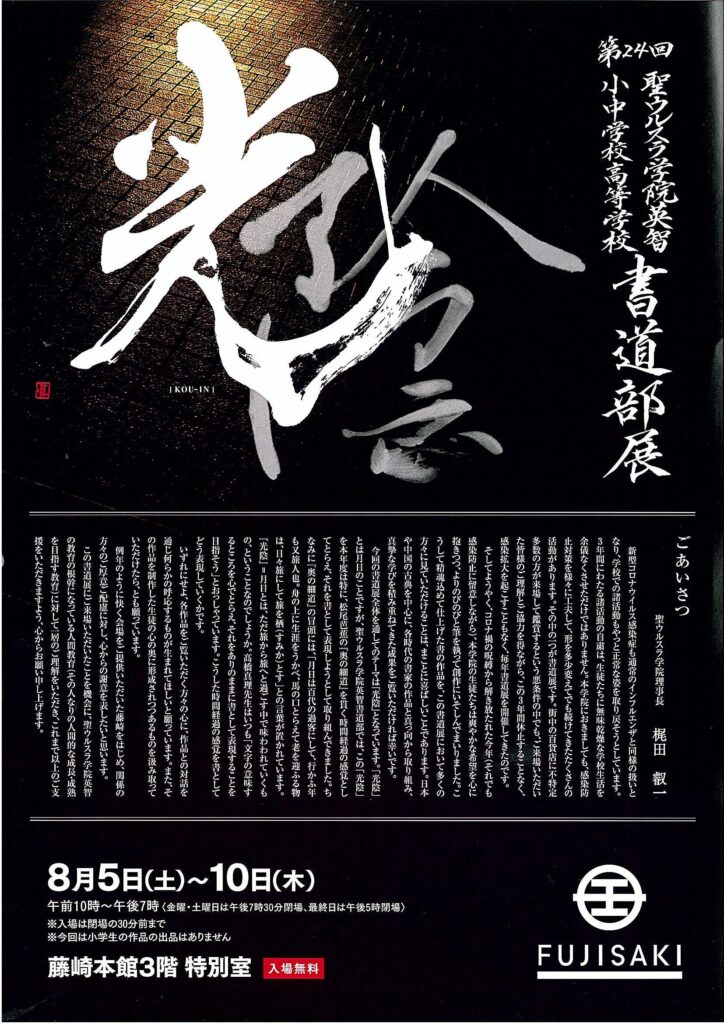 第24回
聖ウルスラ学院英智
小中学校高等学校
書道部展
光陰
[KOU-IN]
ごあいさつ
聖ウルスラ学院理事長 梶田 叡一
新型コロナウイルス感染症も通常のインフルエンザと同様の扱いと
なり、学校での諸活動もやっと正常な姿を取り戻そうとしています。
3年間にわたる諸活動の自粛は、生徒たちに無味乾燥な学校生活を
余儀なくさせただけではありません。本学院におきましても、感染防
止対策を様々に工夫して、形を多少変えてでも続けてきたたくさんの
活動があります。その中の一つが書道展です。街中の百貨店に不特定
多数の方が来場して鑑賞するという悪条件の中でも、ご来場いただい
た皆様のご理解とご協力を得ながら、この3年間休止することなく、
感染拡大を起こすこともなく、毎年書道展を開催してきたのです。
そしてようやく、コロナ禍の呪縛から解き放たれた今年（それでも
感染防止に留意しながら）、本学院の生徒たちは爽やかな希望を心に
抱きつつ、よりのびのびと筆を執って創作にいそしんでまいりました。こ
うして精魂込めて仕上げた書の作品を、この書道展において多くの
方々に見ていただけることは、まことに喜ばしいことであります。日本
や中国の古典を中心に、各時代の書家の作品と真っ向から取り組み、
真摯な学びを積み重ねてきた成果をご覧いただければ幸いです。
今回の書道展全体を通してのテーマは「光陰」となっています。「光陰」
とは月日のことですが、聖ウルスラ学院英智書道部では、この「光陰」
を本年度は特に、松尾芭蕉の『奥の細道』を貫く時間経過の感覚とし
てとらえ、それを書として表現しようとして取り組んできました。ち
なみに『奥の細道』の冒頭には、「月日は百代の過客にして、行かふ年
も又旅人也。舟の上に生涯をうかべ、馬の口とらえて老を迎ふる物
は、日々旅にして旅を栖（すみか）とす」との言葉が置かれています。
「光陰」＝月日とは、ただ「旅から旅へ」と過ごす中で味わわれていくも
の、ということなのでしょうか。高橋真理先生はいつも「文字の意味す
るところを心でとらえ、それをありのままに書として表現することを
目指そう」とおっしゃっています。こうした時間経過の感覚を書として
どう表現していくかです。
いずれにせよ、各作品をご覧いただく方々の心に、作品との対話を
通じ何らかの呼応するものが生まれてほしいと願っています。また、そ
の作品を制作した生徒の心の奥に形成されつつあるものを汲み取って
いただけたら、とも願っています。
例年のように快く会場をご提供いただいた藤崎をはじめ、関係の
方々のご厚意・ご配慮に対し、心からの謝意を表したいと思います。
この書道展にご来場いただいたことを機会に、聖ウルスラ学院英智
の教育の根幹になっている人間教育（その人なりの人間的な成長・成熟
を目指す教育）に対して一層のご理解をいただき、これまで以上のご支
援をいただきますよう、心からお願い申し上げます。
8月5日（土）〜10日（木）
午前10時〜午後7時〈金曜・土曜日は午後7時30分閉場、最終日は午後5時閉場〉
※入場は閉場の30分前まで
※今回は小学生の作品の出品はありません
藤崎本館3階 特別室 入場無料
FUJISAKI